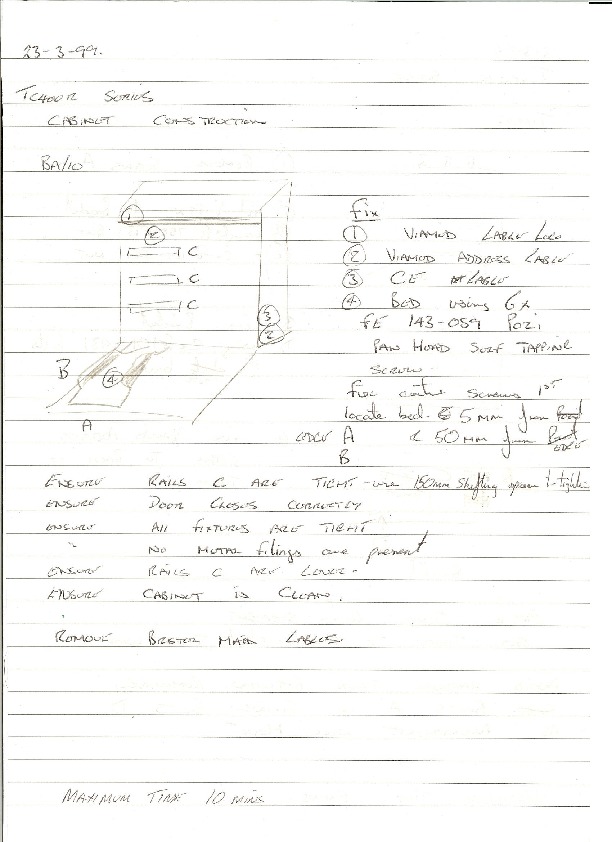 23-3-99.
TC400R SERIES
CABINET CONSTRUCTION
BA/10
1
2
C
C
C
3
2
B
4
A
Fix
1 VIAMED LABLE LOGO
2 VIAMED ADDRESS LABLE
3 CE LABLE
4 BED using 6x
FE 143-089 POZi
PAN HEAD SELF TAPPING
SCREW
Fix centre screws 1st
locate bed @ 5MM from
EDGE A & 50MM from EDGE
B
ENSURE RAILS C ARE TIGHT - use 150mm Shifting spanner tighten
ENSURE DOOR CLOSES CORRECTLY
ENSURE All FIXTURES ARE TIGHT
" NO METAL filings are present
ENSURE RAILS C ARE LEVEL.
ENSURE CABINET is CLEAN.
REMOVE LABLES.
MAXIMUM TIME 10 MINS